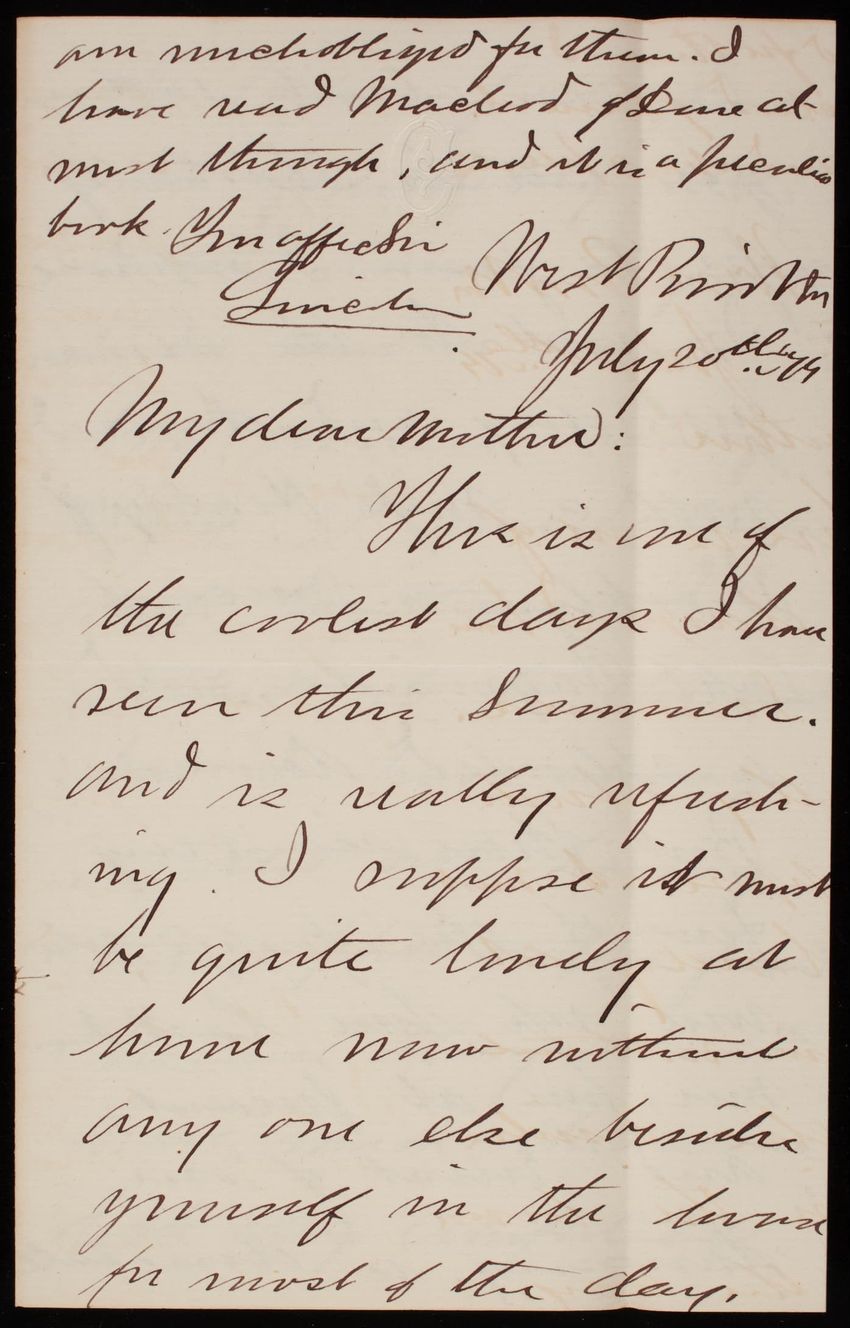 am much obliged for them. I
have read Macleod of Dare al-
most through, and it is a peculiar
book. Your affec Son
Lincoln
West Point
July 20th /79
My dear Mother:
This is one of
the coolest days I have
seen this Summer.
and is really refresh-
ing. I suppose it must
be quite lonely at
home now without
any one else beside
yourself in the house
for most of the day.